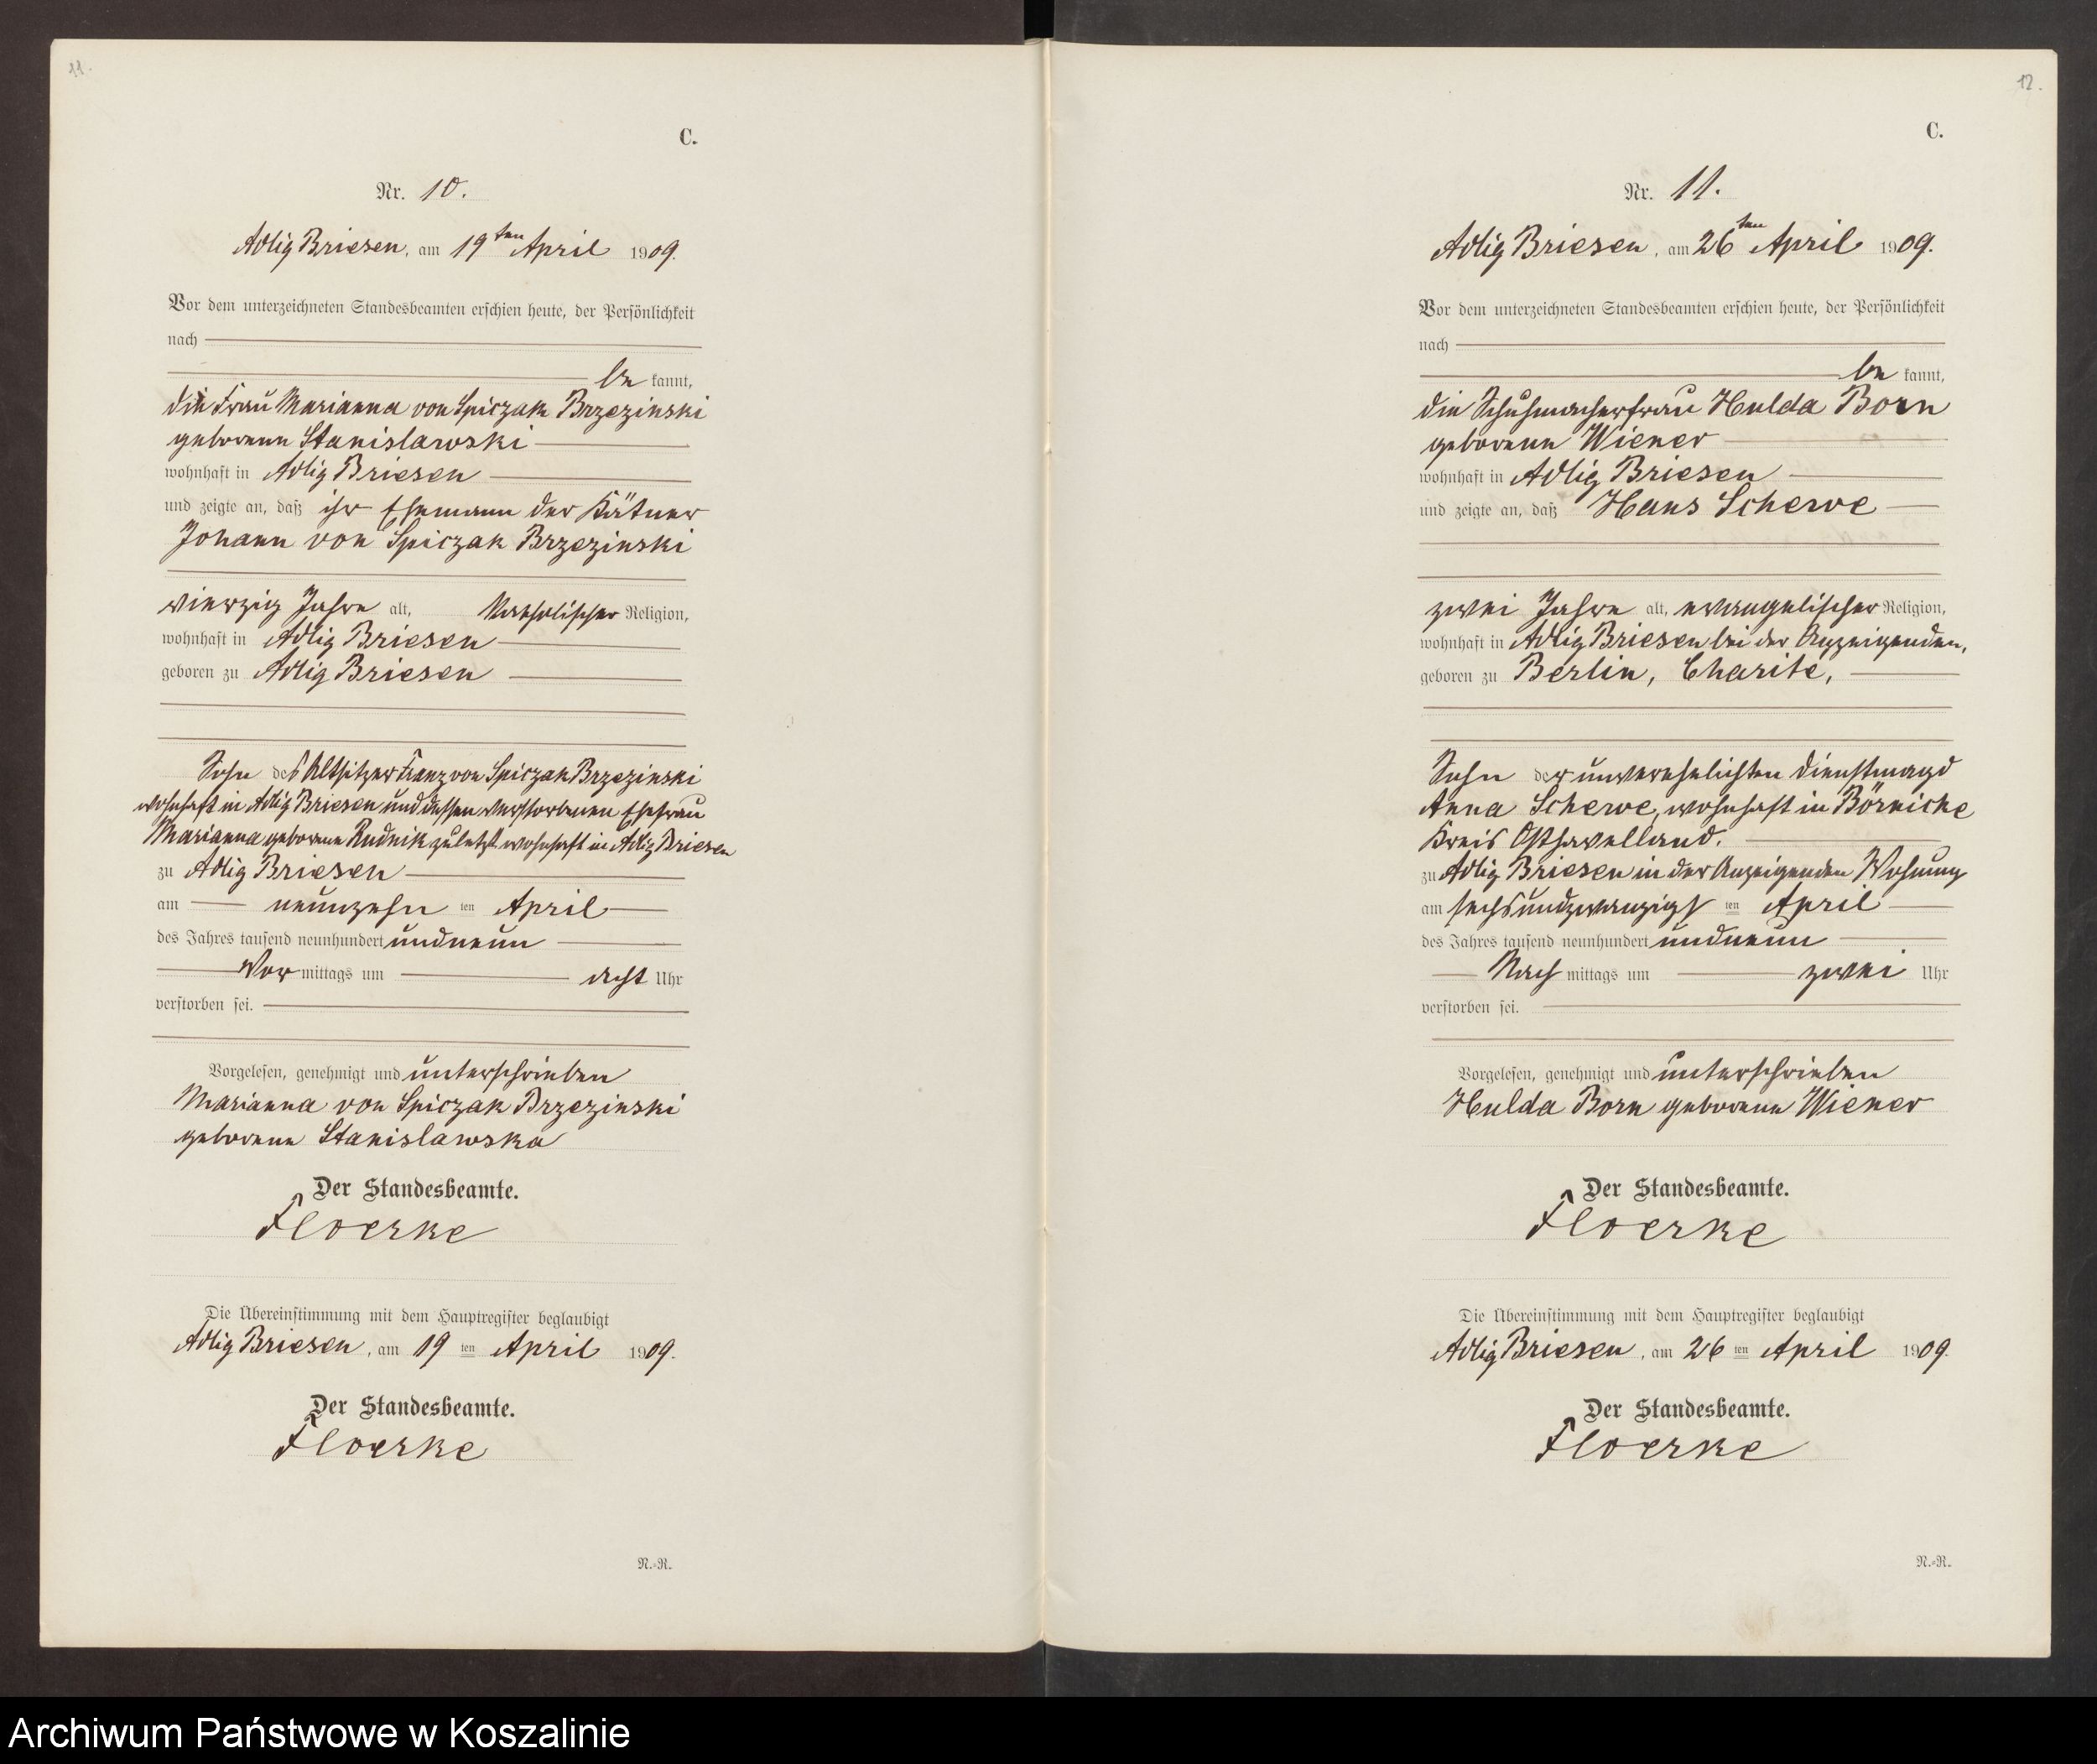 11.
C.
Nr. 10.
Adlig Briesen, am 19ten April 1909.
Vor dem unterzeichneten Standesbeamten erschien heute, der Persönlichkeit
nach
be kannt,
die Frau Marianna von Spiczak Brzezinski
geborene Stanislawski
wohnhaft in Adlig Briesen
und zeigte an, daß ihr Ehemann der Kätner
Johann von Spiczak Brzezinski
vierzig Jahre alt, katholischer Religion,
wohnhaft in Adlig Briesen
geboren zu Adlig Briesen
Sohn des Altsitzer Franz von Spiczak Brzezinski
wohnhaft in Adlig Briesen und dessen verstorbenen Ehefrau
Marianna geborene Rudnik zuletzt wohnhaft in Adlig Briesen
zu Adlig Briesen
am neunzehn ten April
des Jahres tausend neunhundert undneun
Vor mittags um acht Uhr
verstorben sei.
Vorgelesen, genehmigt und unterschrieben
Marianna von Spiczak Brzezinski
geborene Stanislawska
Der Standesbeamte.
Floerke
Die Übereinstimmung mit dem Hauptregister beglaubigt
Adlig Briesen, am 19 ten April 1909.
Der Standesbeamte.
Floerke
N.-R.
12.
C.
Nr. 11.
Adlig Briesen, am 26ten April 1909.
Vor dem unterzeichneten Standesbeamten erschien heute, der Persönlichkeit
nach
be kannt,
die Schuhmacherfrau Hulda Born
geborene Wiener
wohnhaft in Adlig Briesen
und zeigte an, daß Hans Scherwe
zwei Jahre alt, evangelischer Religion,
wohnhaft in Adlig Briesen bei der Anzeigenden,
geboren zu Berlin, Charité,
Sohn der unverehelichten Dienstmagd
Anna Scherwe, wohnhaft in Börnicke
Kreis Osthavelland.
zu Adlig Briesen in der Anzeigenden Wohnung
am sechsundzwanzigs ten April
des Jahres tausend neunhundert undneun
Nach mittags um zwei Uhr
verstorben sei.
Vorgelesen, genehmigt und unterschrieben
Hulda Born geborene Wiener
Der Standesbeamte.
Floerke
Die Übereinstimmung mit dem Hauptregister beglaubigt
Adlig Briesen, am 26 ten April 1909.
Der Standesbeamte.
Floerke
N.-R.
Archiwum Państwowe w Koszalinie